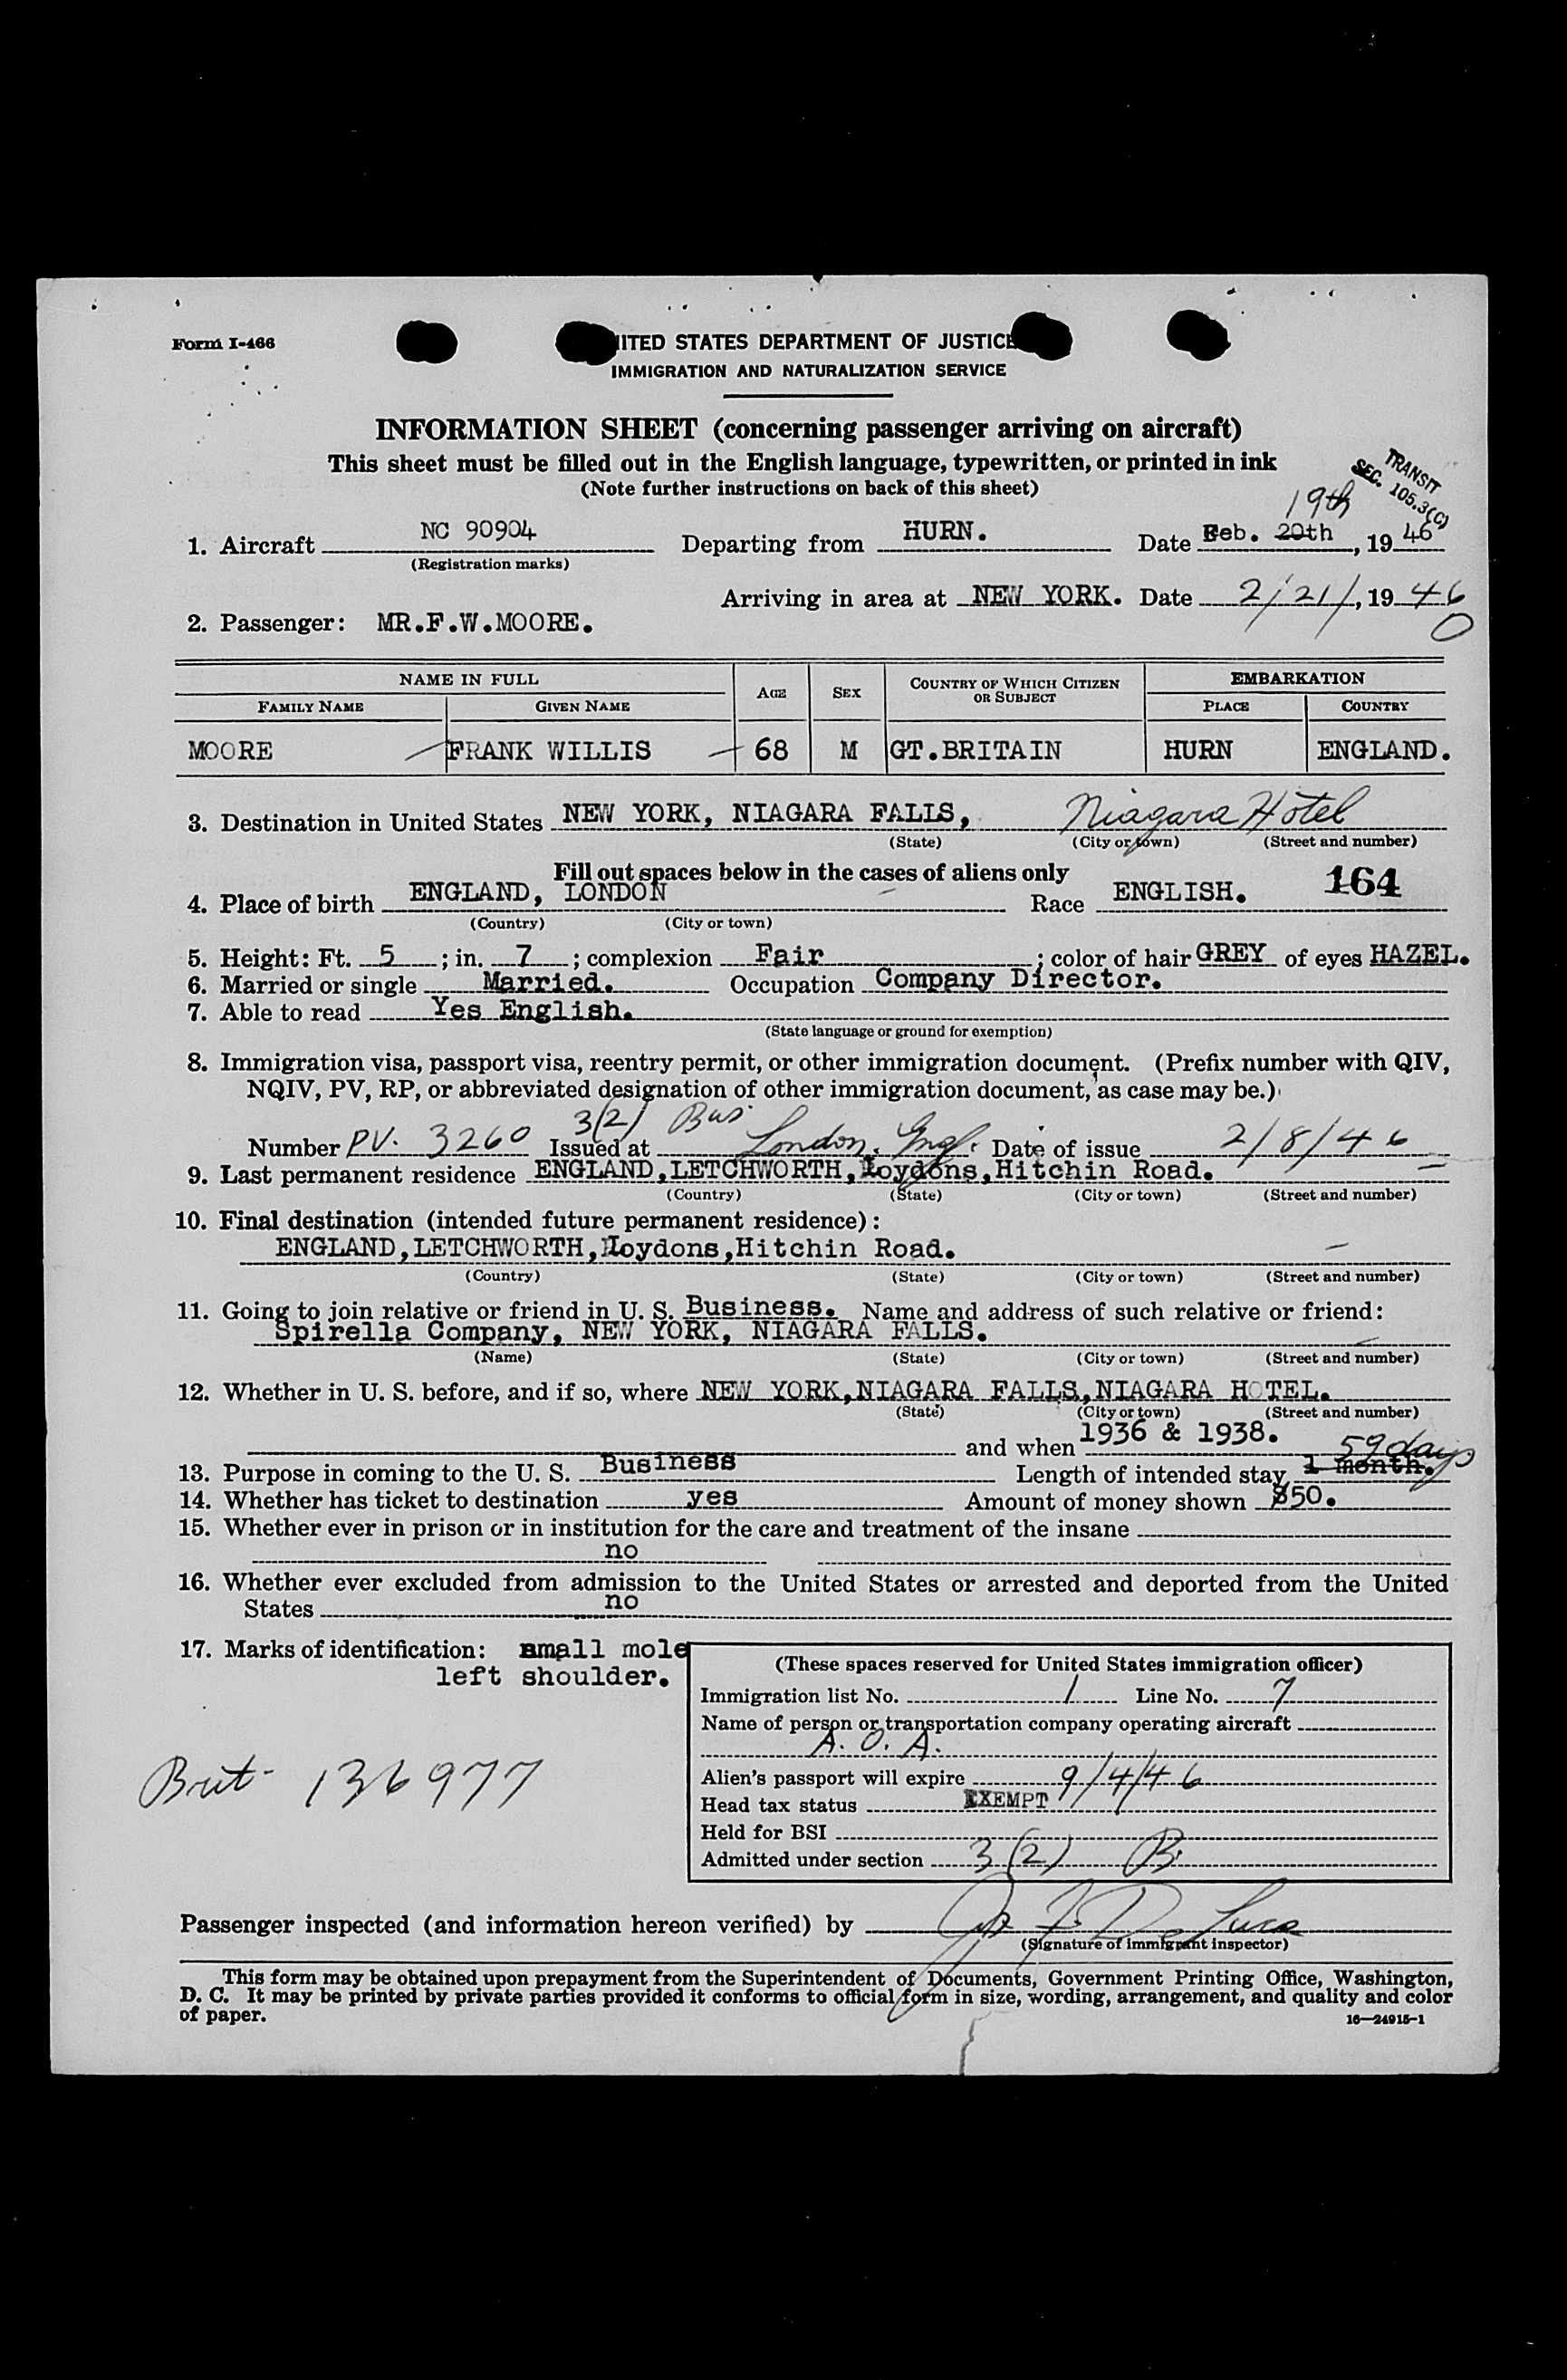 Form I-466
UNITED STATES DEPARTMENT OF JUSTICE
IMMIGRATION AND NATURALIZATION SERVICE
INFORMATION SHEET (concerning passenger arriving on aircraft)
This sheet must be filled out in the English language, typewritten, or printed in ink
(Note further instructions on back of this sheet)
TRANSIT
SEC. 105.3(C)
19th
1. Aircraft NC 90904 Departing from HURN. Date Feb. 20th, 1946
(Registration marks)
Arriving in area at NEW YORK. Date 2/21/, 1946
0
2. Passenger: MR.F.W.MOORE.
NAME IN FULL AGE SEX COUNTRY OF WHICH CITIZEN OR SUBJECT EMBARKATION
FAMILY NAME GIVEN NAME PLACE COUNTRY
MOORE FRANK WILLIS 68 M GT.BRITAIN HURN ENGLAND.
3. Destination in United States NEW YORK, NIAGARA FALLS, Niagara Hotel
(State) (City or town) (Street and number)
Fill out spaces below in the cases of aliens only
164
4. Place of birth ENGLAND, LONDON Race ENGLISH.
(Country) (City or town)
5. Height: Ft. 5; in. 7; complexion Fair; color of hair GREY of eyes HAZEL.
6. Married or single Married. Occupation Company Director.
7. Able to read Yes English.
(State language or ground for exemption)
8. Immigration visa, passport visa, reentry permit, or other immigration document. (Prefix number with QIV,
NQIV, PV, RP, or abbreviated designation of other immigration document, as case may be.)
3(2) Bus.
Number PV. 3260 Issued at London, Engl. Date of issue 2/8/46
9. Last permanent residence ENGLAND,LETCHWORTH,Loydons,Hitchin Road.
(Country) (State) (City or town) (Street and number)
10. Final destination (intended future permanent residence):
ENGLAND,LETCHWORTH,Loydons,Hitchin Road.
(Country) (State) (City or town) (Street and number)
11. Going to join relative or friend in U. S. Business. Name and address of such relative or friend:
Spirella Company, NEW YORK, NIAGARA FALLS.
(Name) (State) (City or town) (Street and number)
12. Whether in U. S. before, and if so, where NEW YORK,NIAGARA FALLS,NIAGARA HOTEL.
(State) (City or town) (Street and number)
and when 1936 & 1938.
59 days
13. Purpose in coming to the U. S. Business Length of intended stay 1 month.
14. Whether has ticket to destination yes Amount of money shown $50.
15. Whether ever in prison or in institution for the care and treatment of the insane
no
16. Whether ever excluded from admission to the United States or arrested and deported from the United
States no
17. Marks of identification: small mole
left shoulder.
(These spaces reserved for United States immigration officer)
Immigration list No. 1 Line No. 7
Name of person or transportation company operating aircraft
A. O. A.
Alien's passport will expire 9/4/46
Head tax status EXEMPT
Held for BSI
Admitted under section 3(2) B.
Brit- 136977
Passenger inspected (and information hereon verified) by Jos F. De Luca
(Signature of immigrant inspector)
This form may be obtained upon prepayment from the Superintendent of Documents, Government Printing Office, Washington,
D. C. It may be printed by private parties provided it conforms to official form in size, wording, arrangement, and quality and color
of paper.
16—24915-1